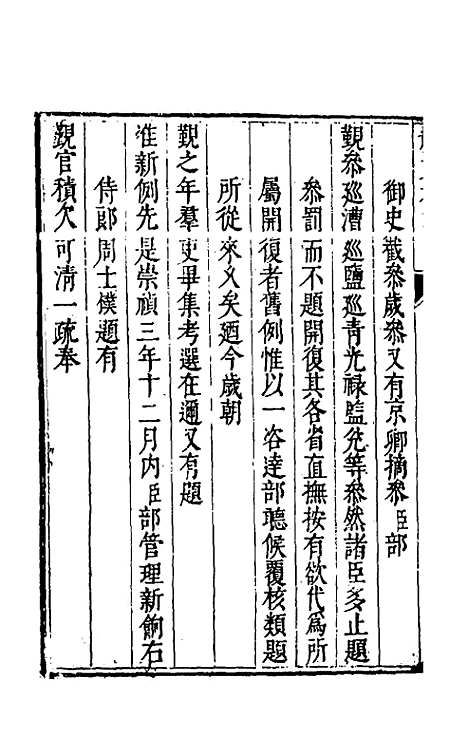 御史截參歲參又有京卿摘參臣部
覲參巡漕巡鹽巡青光祿監兌等參然諸臣多止題
參罰而不題開復其各省直撫按有欲代為所
屬開復者舊例惟以一咨達部聽候覆核類題
所從來乂矣廼今歲朝
覲之年羣吏畢集考選在邇又有題
准新例先是崇禎三年十二月內臣部管理新餉右
侍郎周士樸題有
覲官積欠可清一疏奉